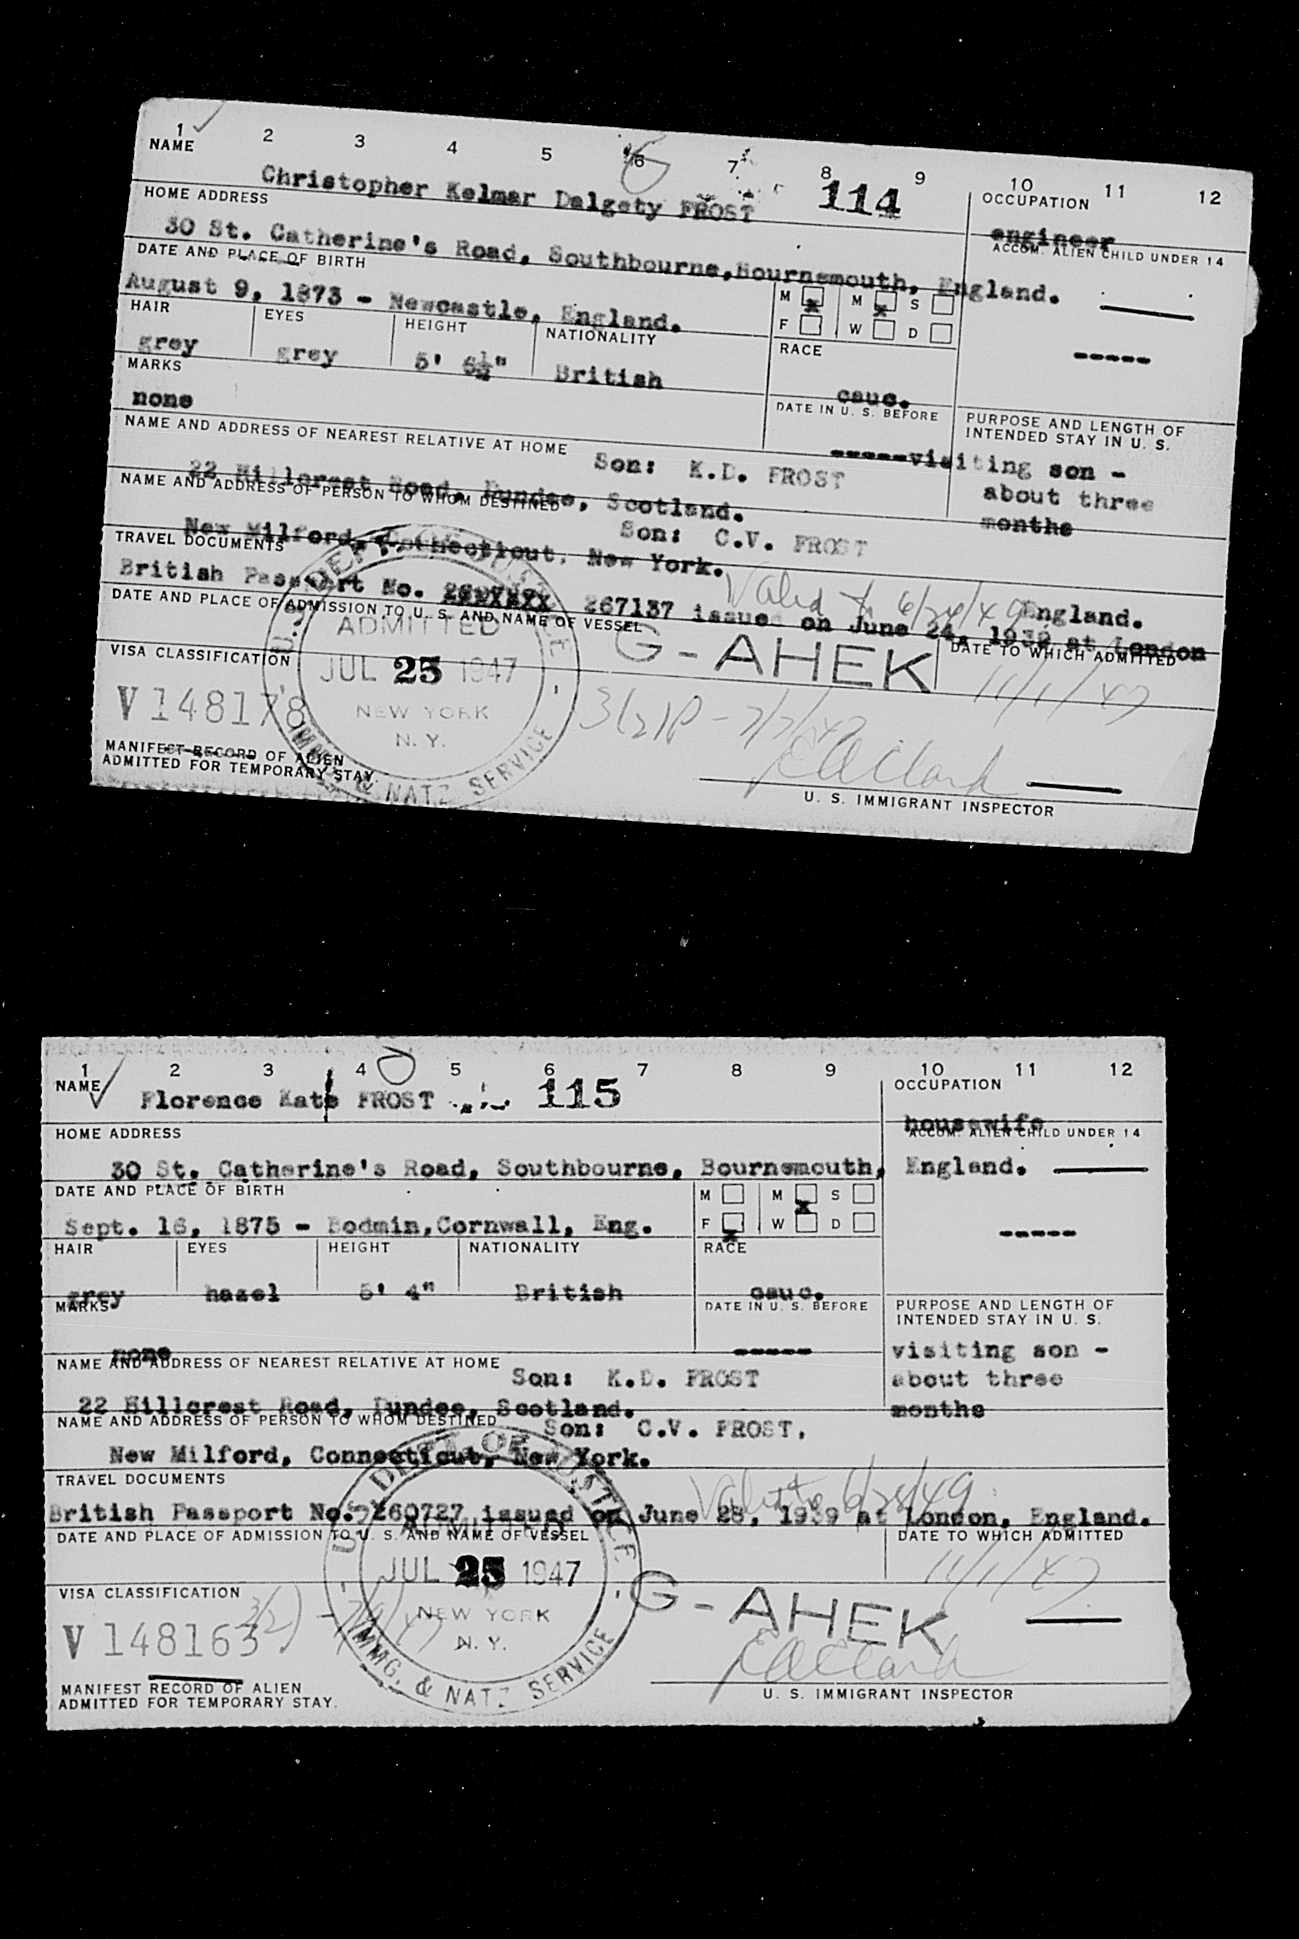 1 2 3 4 5 6 7 8 9 10 11 12
NAME
Christopher Kelmar Dalgety FROST 114
OCCUPATION
engineer
HOME ADDRESS
30 St. Catherine's Road, Southbourne, Bournemouth, England.
ACCOM. ALIEN CHILD UNDER 14
-----
DATE AND PLACE OF BIRTH
August 9, 1873 - Newcastle, England.
M x M x S
F W D
HAIR EYES HEIGHT NATIONALITY RACE
grey grey 5' 6½" British cauc.
MARKS DATE IN U. S. BEFORE
none -----
PURPOSE AND LENGTH OF
INTENDED STAY IN U. S.
visiting son -
about three
months
NAME AND ADDRESS OF NEAREST RELATIVE AT HOME
Son: K.D. FROST
22 Hillcrest Road, Dundee, Scotland.
NAME AND ADDRESS OF PERSON TO WHOM DESTINED
Son: C.V. FROST
New Milford, Connecticut, New York.
TRAVEL DOCUMENTS
Valid to 6/24/49
British Passport No. 267137 issued on June 24, 1939 at London England.
DATE AND PLACE OF ADMISSION TO U. S. AND NAME OF VESSEL
G-AHEK
DATE TO WHICH ADMITTED
11/1/47
U. S. DEPT. OF JUSTICE
ADMITTED
JUL 25 1947
NEW YORK
N. Y.
IMMG. & NATZ SERVICE
VISA CLASSIFICATION
V148178
3(2)
E A Clark
MANIFEST RECORD OF ALIEN
ADMITTED FOR TEMPORARY STAY.
U. S. IMMIGRANT INSPECTOR
1 2 3 4 5 6 7 8 9 10 11 12
NAME
Florence Kate FROST 115
OCCUPATION
housewife
HOME ADDRESS
30 St. Catherine's Road, Southbourne, Bournemouth, England.
ACCOM. ALIEN CHILD UNDER 14
-----
DATE AND PLACE OF BIRTH
Sept. 16, 1875 - Bodmin, Cornwall, Eng.
M M x S
F x W D
HAIR EYES HEIGHT NATIONALITY RACE
grey hazel 5' 4" British cauc.
MARKS DATE IN U. S. BEFORE
none -----
PURPOSE AND LENGTH OF
INTENDED STAY IN U. S.
visiting son -
about three
months
NAME AND ADDRESS OF NEAREST RELATIVE AT HOME
Son: K.D. FROST
22 Hillcrest Road, Dundee, Scotland.
NAME AND ADDRESS OF PERSON TO WHOM DESTINED
Son: C.V. FROST.
New Milford, Connecticut, New York.
TRAVEL DOCUMENTS
Valid to 6/28/49
British Passport No. 260727 issued on June 28, 1939 at London, England.
DATE AND PLACE OF ADMISSION TO U. S. AND NAME OF VESSEL
DATE TO WHICH ADMITTED
11/1/47
U. S. DEPT. OF JUSTICE
ADMITTED
JUL 25 1947
NEW YORK
N. Y.
IMMG. & NATZ SERVICE
G-AHEK
VISA CLASSIFICATION
V 148163
3(2)
E A Clark
MANIFEST RECORD OF ALIEN
ADMITTED FOR TEMPORARY STAY.
U. S. IMMIGRANT INSPECTOR